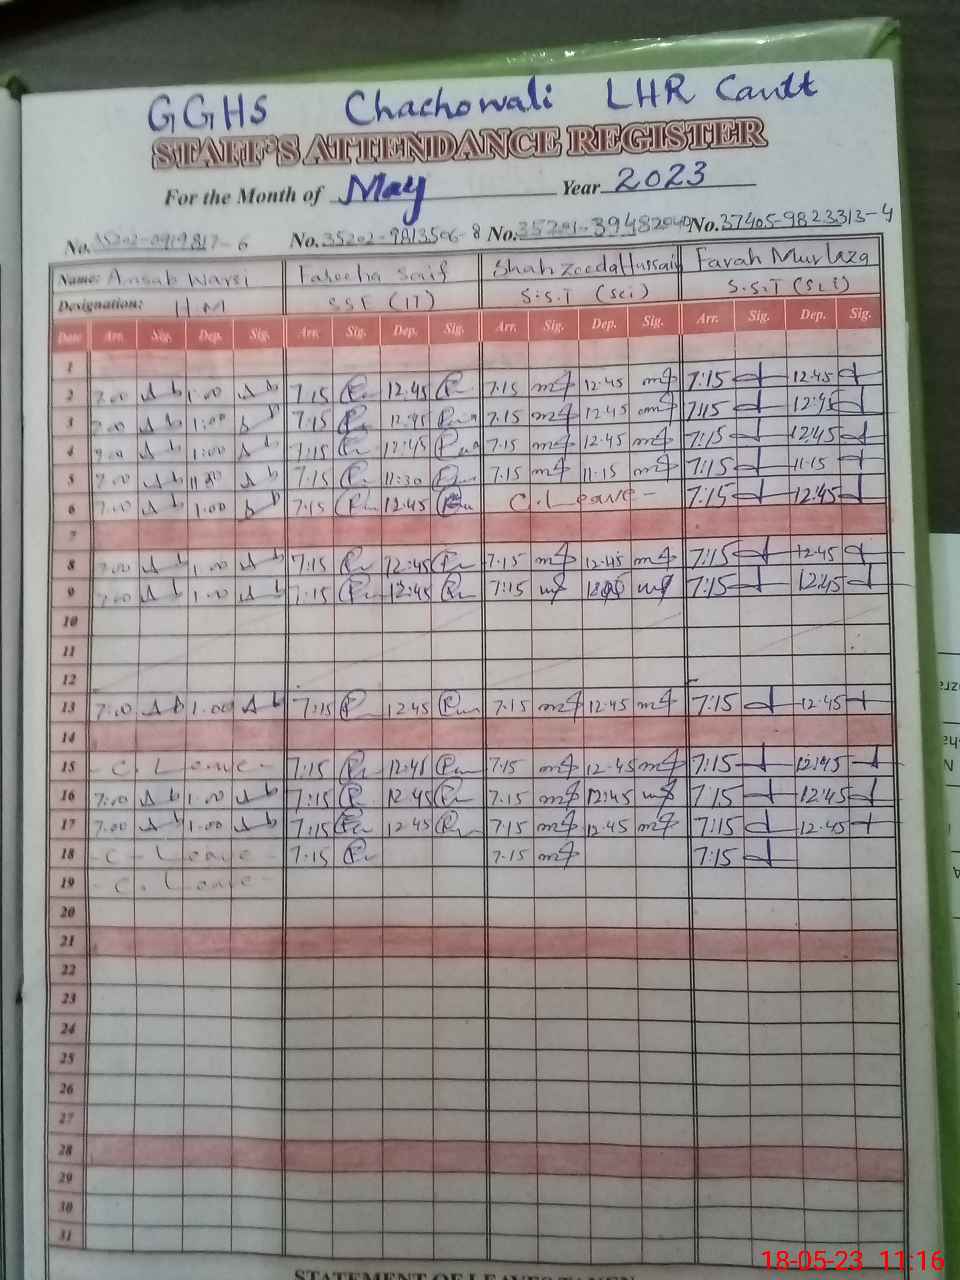 GGHS Chachowali LHR Cantt
STAFF'S ATTENDANCE REGISTER
For the Month of May Year 2023
No. 35202-0919817-6 No. 35202-9813506-8 No. No. 37405-9823313-4
Name: Ansab Warsi Faleeha Saif Shahzeeda Hussain Farah Murtaza
Designation: H.M SSE (IT) S.S.T (Sci) S.S.T (Sci)
Date Arr. Sig. Dep. Sig. Arr. Sig. Dep. Sig. Arr. Sig. Dep. Sig. Arr. Sig. Dep. Sig.
1
2 7:00 1:00 7:15 12:45 7:15 12:45 7:15 12:45
3 7:00 1:00 7:15 12:45 7.15 12:45 7:15 12:45
4 7:00 1:00 7:15 12:45 7.15 12.45 7:15 12:45
5 7:00 7:15 11:30 7.15 11.15 7:15 11.15
6 7:00 1:00 7:15 12:45 C. Leave - 7:15 12:45
7
8 7:00 1:00 7:15 12:45 7.15 12.45 7:15 12:45
9 7:00 1:00 7:15 12:45 7:15 7:15 12:45
10
11
12
13 7:00 1:00 7:15 12:45 7.15 12:45 7:15 12:45
14
15 - C. Leave - 7:15 12:45 7.15 12.45 7:15 12:45
16 7:00 1:00 7:15 12:45 7.15 12:45 7:15 12:45
17 7:00 1:00 7:15 12:45 7.15 12.45 7:15 12.45
18 - C - Leave - 7:15 7.15 7:15
19 - C. Leave -
20
21
22
23
24
25
26
27
28
29
30
31
STATEMENT OF LEAVES TAKEN
18-05-23 11:16